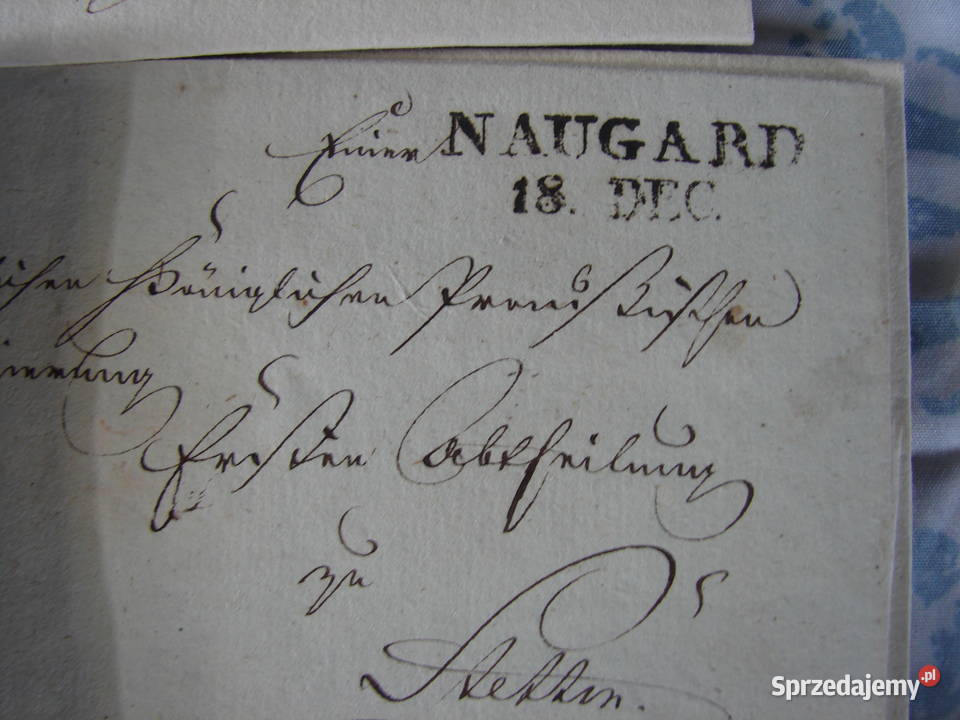 Einer NAUGARD
18. DEC.
lichen Königlichen Preuss'ischen
ierung
Ersten Abtheilung
zu
Stettin.
Sprzedajemy.pl